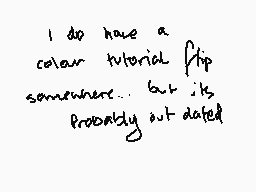 I do have a
colour tutorial flip
somewhere.. but its
Probably out dated